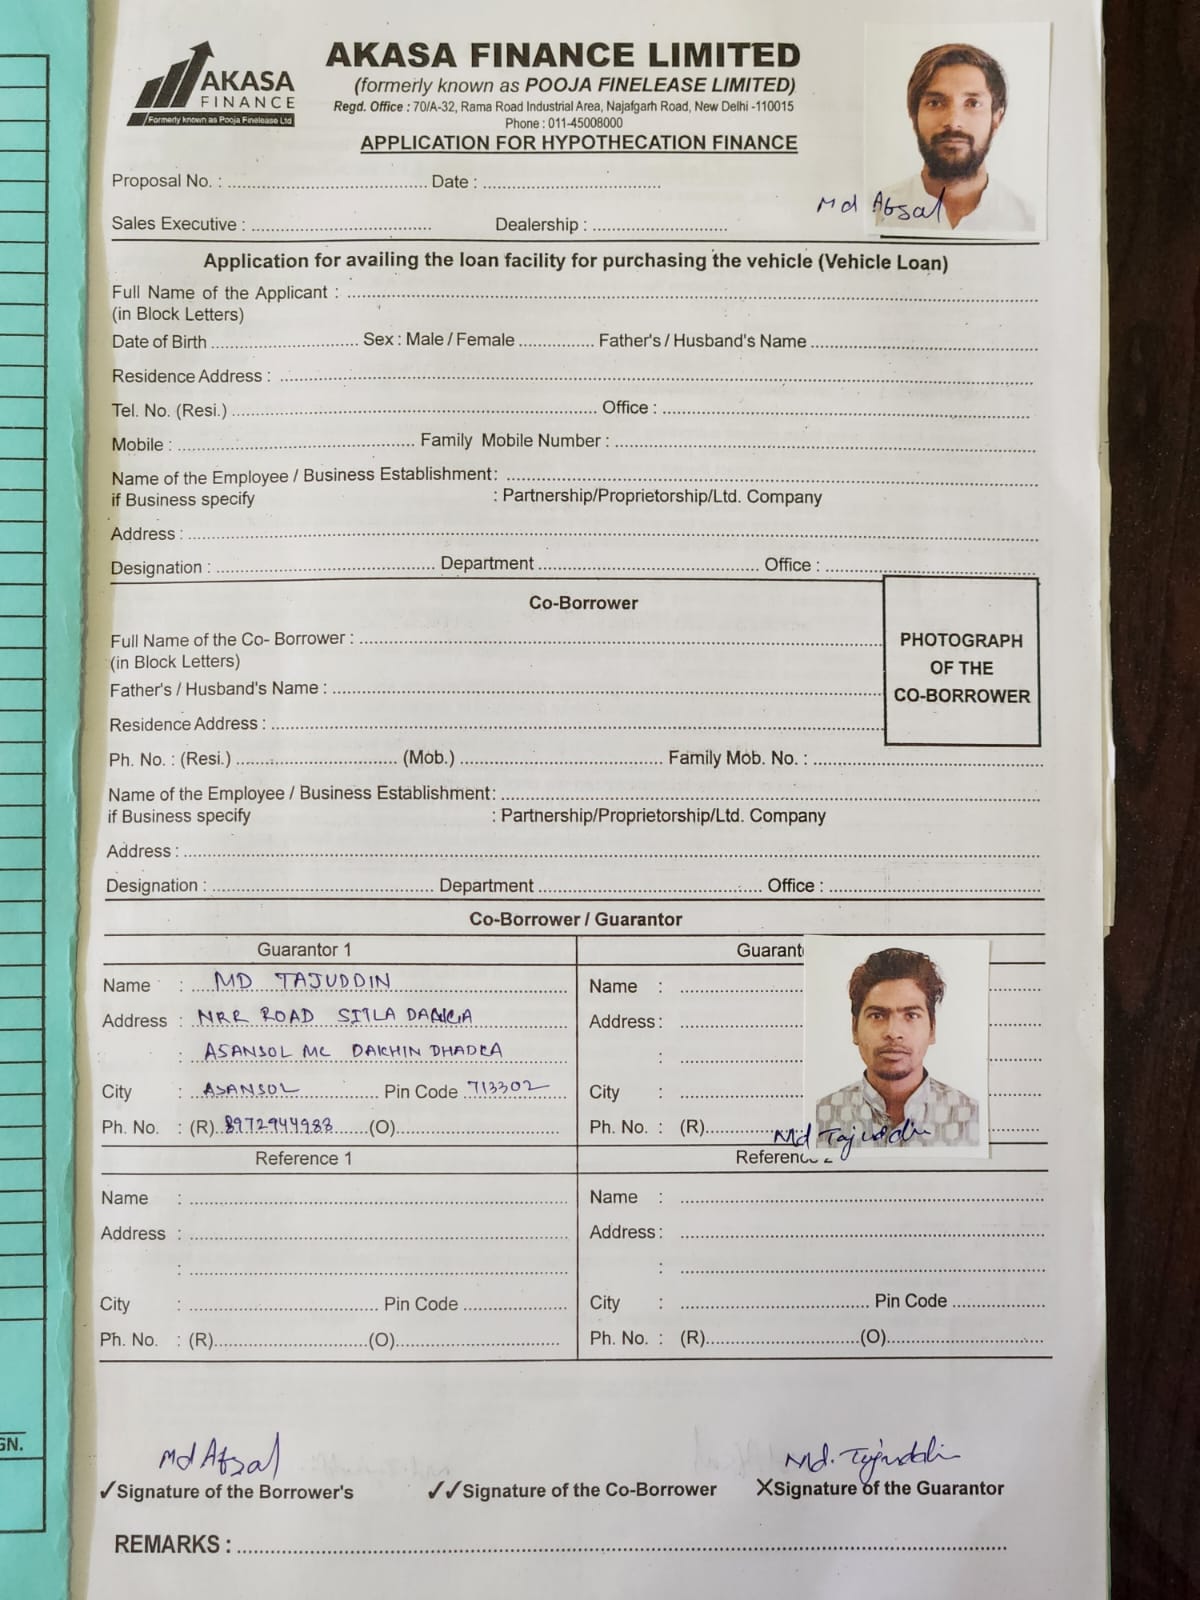 AKASA FINANCE LIMITED
(formerly known as POOJA FINELEASE LIMITED)
AKASA
FINANCE
Formerly known as Pooja Finelease Ltd
Regd. Office : 70/A-32, Rama Road Industrial Area, Najafgarh Road, New Delhi -110015
Phone : 011-45008000
APPLICATION FOR HYPOTHECATION FINANCE
Proposal No. : Date :
Md Afsal
Sales Executive : Dealership :
Application for availing the loan facility for purchasing the vehicle (Vehicle Loan)
Full Name of the Applicant :
(in Block Letters)
Date of Birth Sex : Male / Female Father's / Husband's Name
Residence Address :
Tel. No. (Resi.) Office :
Mobile : Family Mobile Number :
Name of the Employee / Business Establishment:
if Business specify : Partnership/Proprietorship/Ltd. Company
Address :
Designation : Department Office :
Co-Borrower
Full Name of the Co- Borrower :
(in Block Letters)
PHOTOGRAPH
OF THE
CO-BORROWER
Father's / Husband's Name :
Residence Address :
Ph. No. : (Resi.) (Mob.) Family Mob. No. :
Name of the Employee / Business Establishment:
if Business specify : Partnership/Proprietorship/Ltd. Company
Address :
Designation : Department Office :
Co-Borrower / Guarantor
Guarantor 1 Guarant
Name : MD TAJUDDIN Name :
Address : NRR ROAD SITLA Address :
: ASANSOL MC DAKHIN DHADKA :
City : ASANSOL Pin Code 713302 City :
Ph. No. : (R) 8972944988 (O) Ph. No. : (R)
Md Tajuddin
Reference 1 Reference 2
Name : Name :
Address : Address :
: :
City : Pin Code City : Pin Code
Ph. No. : (R) (O) Ph. No. : (R) (O)
Md Afsal Md. Tajuddin
✓Signature of the Borrower's ✓✓Signature of the Co-Borrower XSignature of the Guarantor
REMARKS :
GN.